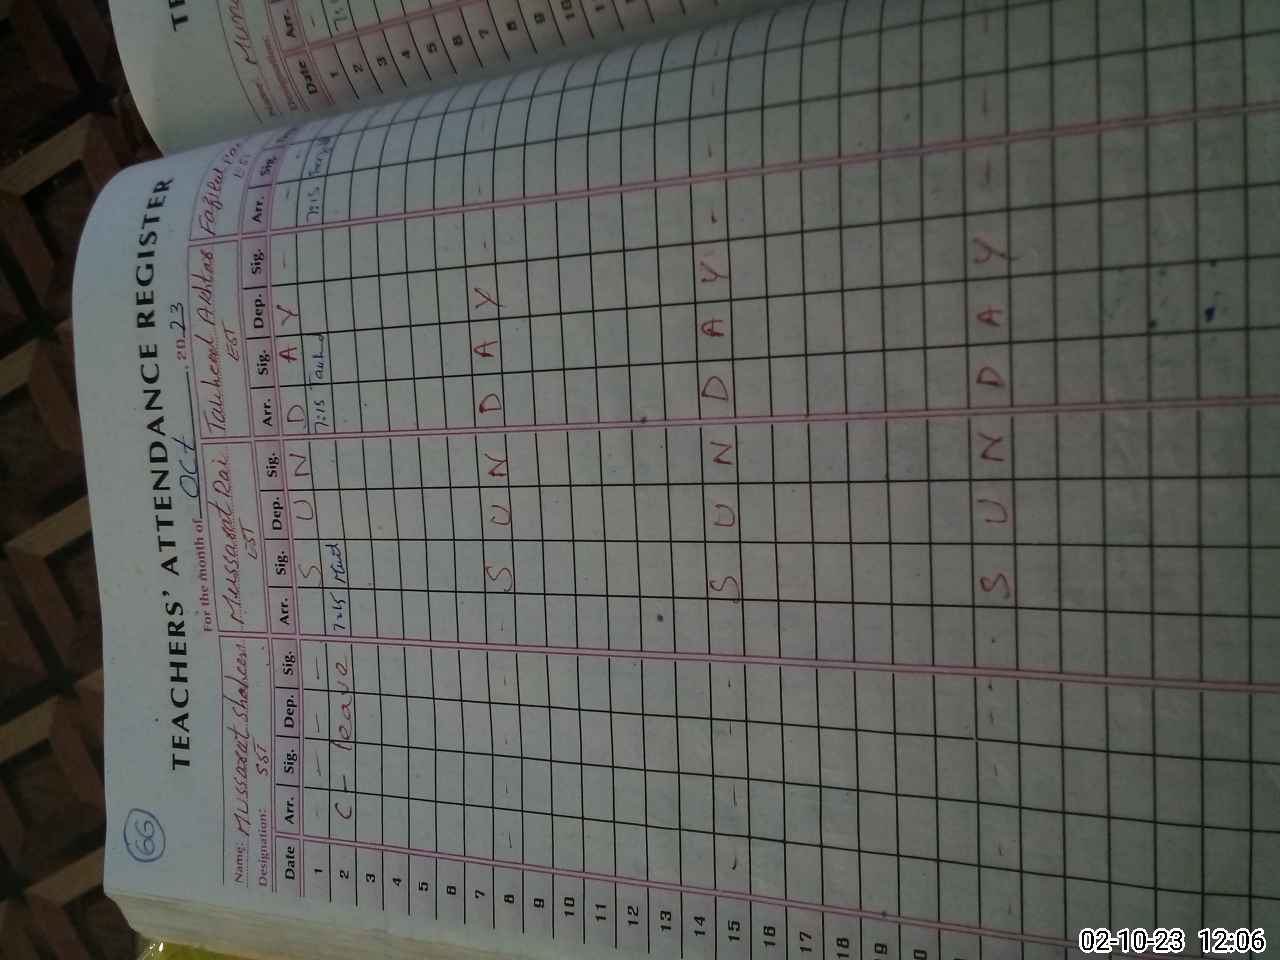 66
TEACHERS' ATTENDANCE REGISTER
For the month of Oct, 2023
Name: Mussarat Shaheen Mussarat Rai Tauheed Akhtar
Designation: SST EST EST EST
Date Arr. Sig. Dep. Sig. Arr. Sig. Dep. Sig. Arr. Sig. Dep. Sig. Arr. Sig.
1 - - - - S U N D A Y - -
2 C - leave 7:15 7:15 7:15
3
4
5
6
7
8 - - - - S U N D A Y - - -
9
10
11
12
13
14
15 - - - - S U N D A Y - - -
16
17
18
19
S U N D A Y
Date Arr.
1
2
3
4
5
6
7
8
9
10
02-10-23 12:06